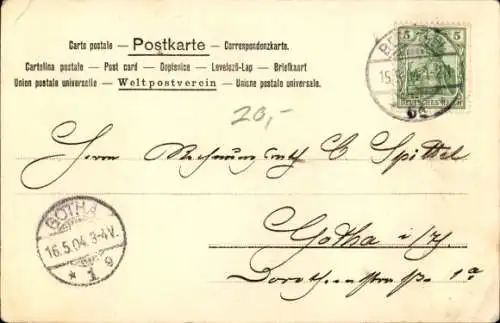 Carte postale — Postkarte — Correspondenzkarte.
Cartolina postale — Post card — Dopisnice — Levelező-Lap — Briefkaart
Union postale universelle — Weltpostverein — Unione postale universale.
5 5
DEUTSCHES REICH
20,-
Herrn Rechnungsrath C Spittel
Gotha i/Th
Dorotheenstraße 1a
GOTHA
16.5.04.3-4V.
* 1 g